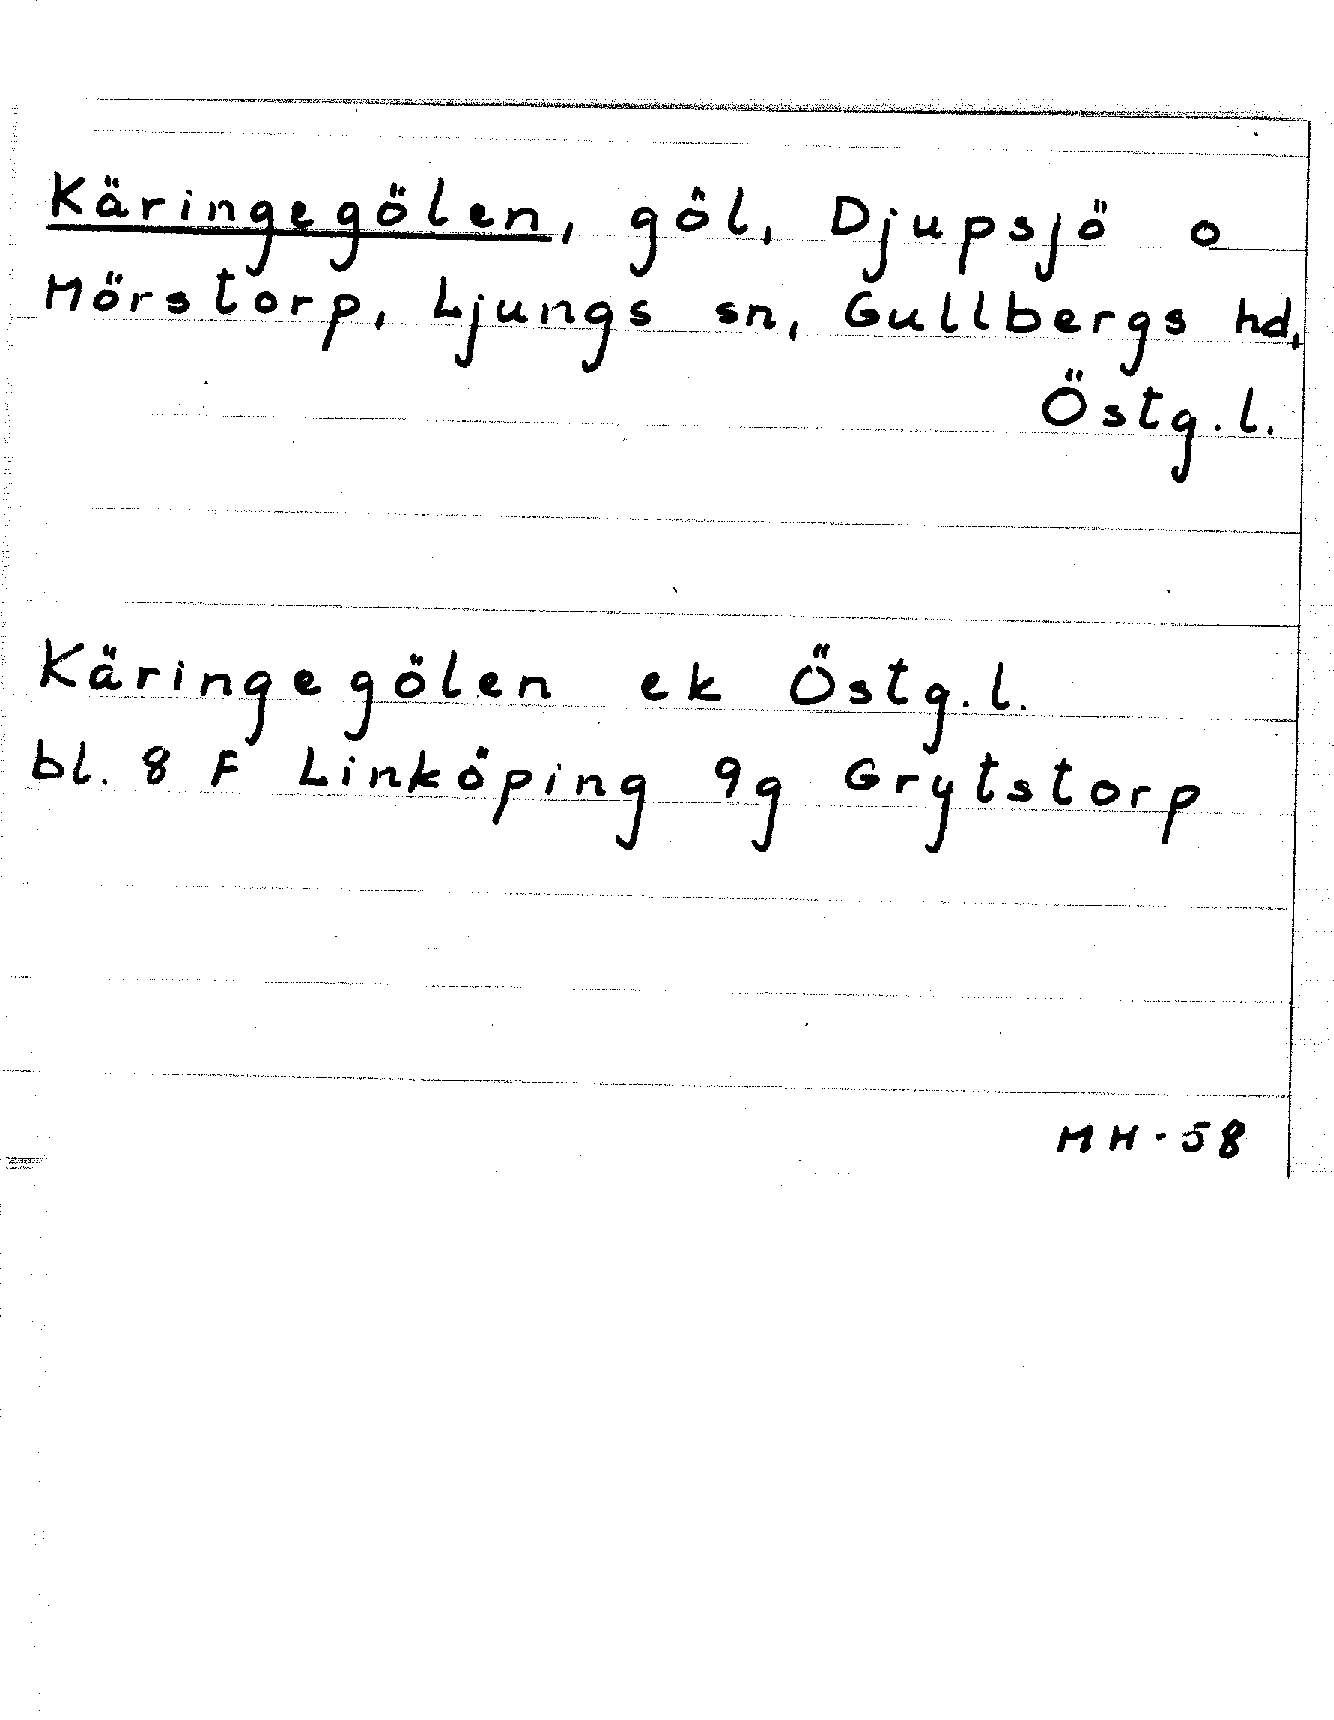 Käringegölen, göl, Djupsjö o
Mörstorp, Ljungs sn, Gullbergs hd,
Östg.l.
Käringegölen ek Östg.l.
bl. 8 F Linköping 9g Grytstorp
MH-58